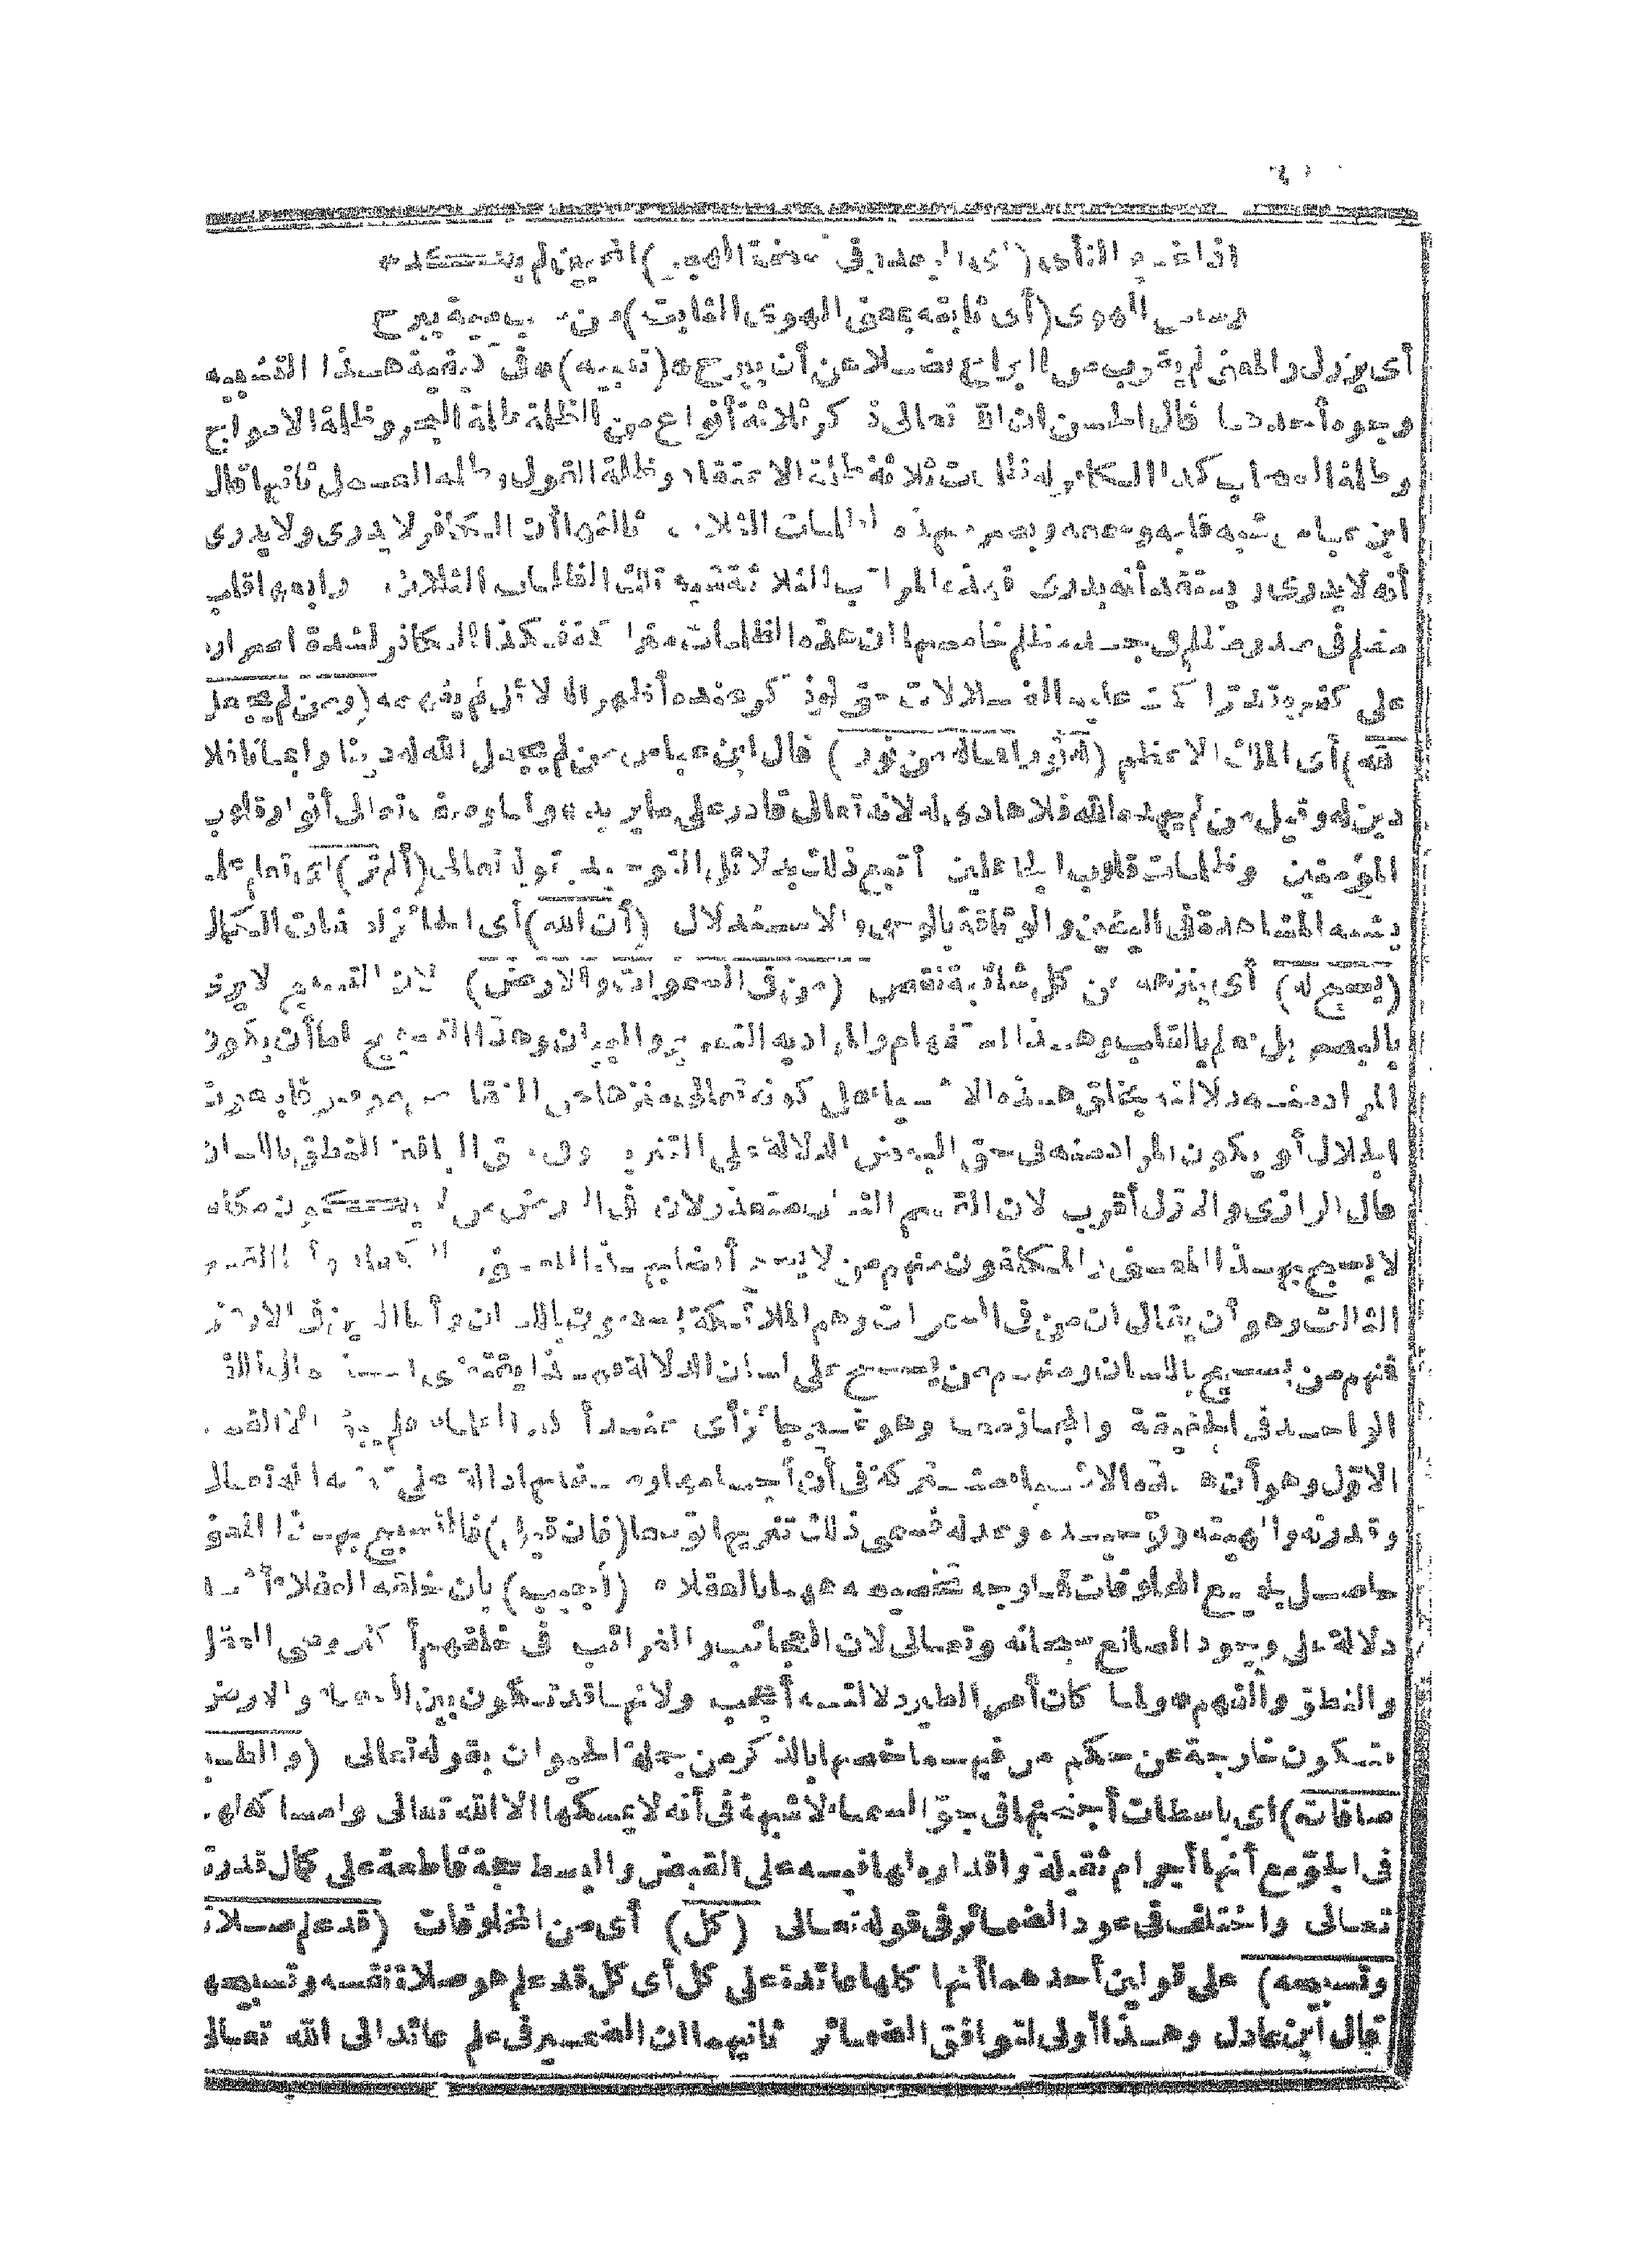 اذا غير النأى (أى البعد وفى نسخة الهجر) المحبين لم يكد
رسيس الهوى (أى ثابته بمعنى الهوى الثابت) من مية يبرح
أى يزول والمعنى لم يقرب من البراح فضلا عن أن يبرح (تنبيه) فى كيفية هذا التشبيه
وجوه أحدها قال الحسن ان الله تعالى ذكر ثلاثة أنواع من الظلمة ظلمة البحر وظلمة الامواج
وظلمة السحاب كذا الكافر له ظلمات ثلاثة ظلمة الاعتقاد وظلمة القول وظلمة العمل ثانيها قال
ابن عباس شبه قلبه وسمعه وبصره بهذه الظلمات الثلاث ثالثها أن الكافر لا يدرى ولا يدرى
أنه لا يدرى ويعتقد أنه يدرى فهذه المراتب الثلاثة تشبه تلك الظلمات الثلاث رابعها قلب
مظلم فى صدر مظلم فى جسد مظلم خامسها ان هذه الظلمات متراكمة فكذا الكافر لشدة اصراره
على كفره قد تراكمت عليه الضلالات حتى لو ذكر عنده أظهر الدلائل لم يفهمه (ومن لم يجعل
الله) أى الملك الاعظم (له نورا فماله من نور) قال ابن عباس من لم يجعل الله له دينا وايمانا فلا
دين له وقيل من لم يهده الله فلا هادى له لانه تعالى قادر على ما يريد ولما وصف تعالى أنوار قلوب
المؤمنين وظلمات قلوب الجاهلين أتبع ذلك بدلائل التوحيد بقوله تعالى (ألم تر) أى تعلم علما
يشبه المشاهدة فى اليقين والوثاقة بالوحى والاستدلال (أن الله) أى الحائز لصفات الكمال
(يسبح له) أى ينزهه عن كل شائبة نقص (من فى السموات والارض) لان التسبيح لا يرى
بالبصر بل يعلم بالقلب وهذا استفهام والمراد به التقرير والبيان وهذا التسبيح اما أن يكون
المراد منه دلالته بخلق هذه الاشياء على كونه تعالى منزها عن النقائص موصوفا بنعوت
الجلال أو يكون المراد منه فى حق البعض الدلالة على التنزيه وفى حق الباقين النطق باللسان
قال الرازى والاول أقرب لان القسم الثانى متعذر لان فى الارض من لا يكون مكلفا
لا يسبح بهذا المعنى والمكلفون منهم من لا يسبح أيضا بهذا المعنى كالكفار وأما القسم
الثالث وهو أن يقال ان من فى السموات وهم الملائكة يسبحون باللسان وأما الذين فى الارض
فمنهم من يسبح باللسان ومنهم من يسبح على لسان الدلالة فهذا يقتضى استعمال اللفظ
الواحد فى الحقيقة والمجاز معا وهو غير جائز أى عند أكثر العلماء فلم يبق الا القسم
الاول وهو أن هذه الاشياء مشتركة فى أن أجسامها وصفاتها دالة على تنزيه الله تعالى
وقدرته والهيته وتوحيده وعدله فسمى ذلك تنزيها توسعا (فان قيل) فالتسبيح بهذا المعنى
حاصل لجميع المخلوقات فما وجه تخصيصه ههنا بالعقلاء (أجيب) بان خلقة العقلاء أشد
دلالة على وجود الصانع سبحانه وتعالى لان العجائب والغرائب فى خلقهم أكثر وهى العقل
والنطق والفهم ولما كان أمر الطير دلالته أعجب ولانها قد تكون بين السماء والارض
فتكون خارجة عن حكم من فيهما خصها بالذكر من جملة الحيوان بقوله تعالى (والطير
صافات) أى باسطات أجنحتها فى جو السماء لا شبهة فى أنه لا يمسكها الا الله تعالى وامساكه لها
فى الجو مع أنها أجرام ثقيلة واقداره لها فيه على القبض والبسط حجة قاطعة على كمال قدرته
تعالى واختلف فى عود الضمائر فى قوله تعالى (كل) أى من المخلوقات (قد علم صلاته
وتسبيحه) على قولين أحدهما أنها كلها عائدة على كل أى كل قد علم هو صلاة نفسه وتسبيحه
قال ابن عادل وهذا أولى لتوافق الضمائر ثانيهما ان الضمير فى علم عائد الى الله تعالى